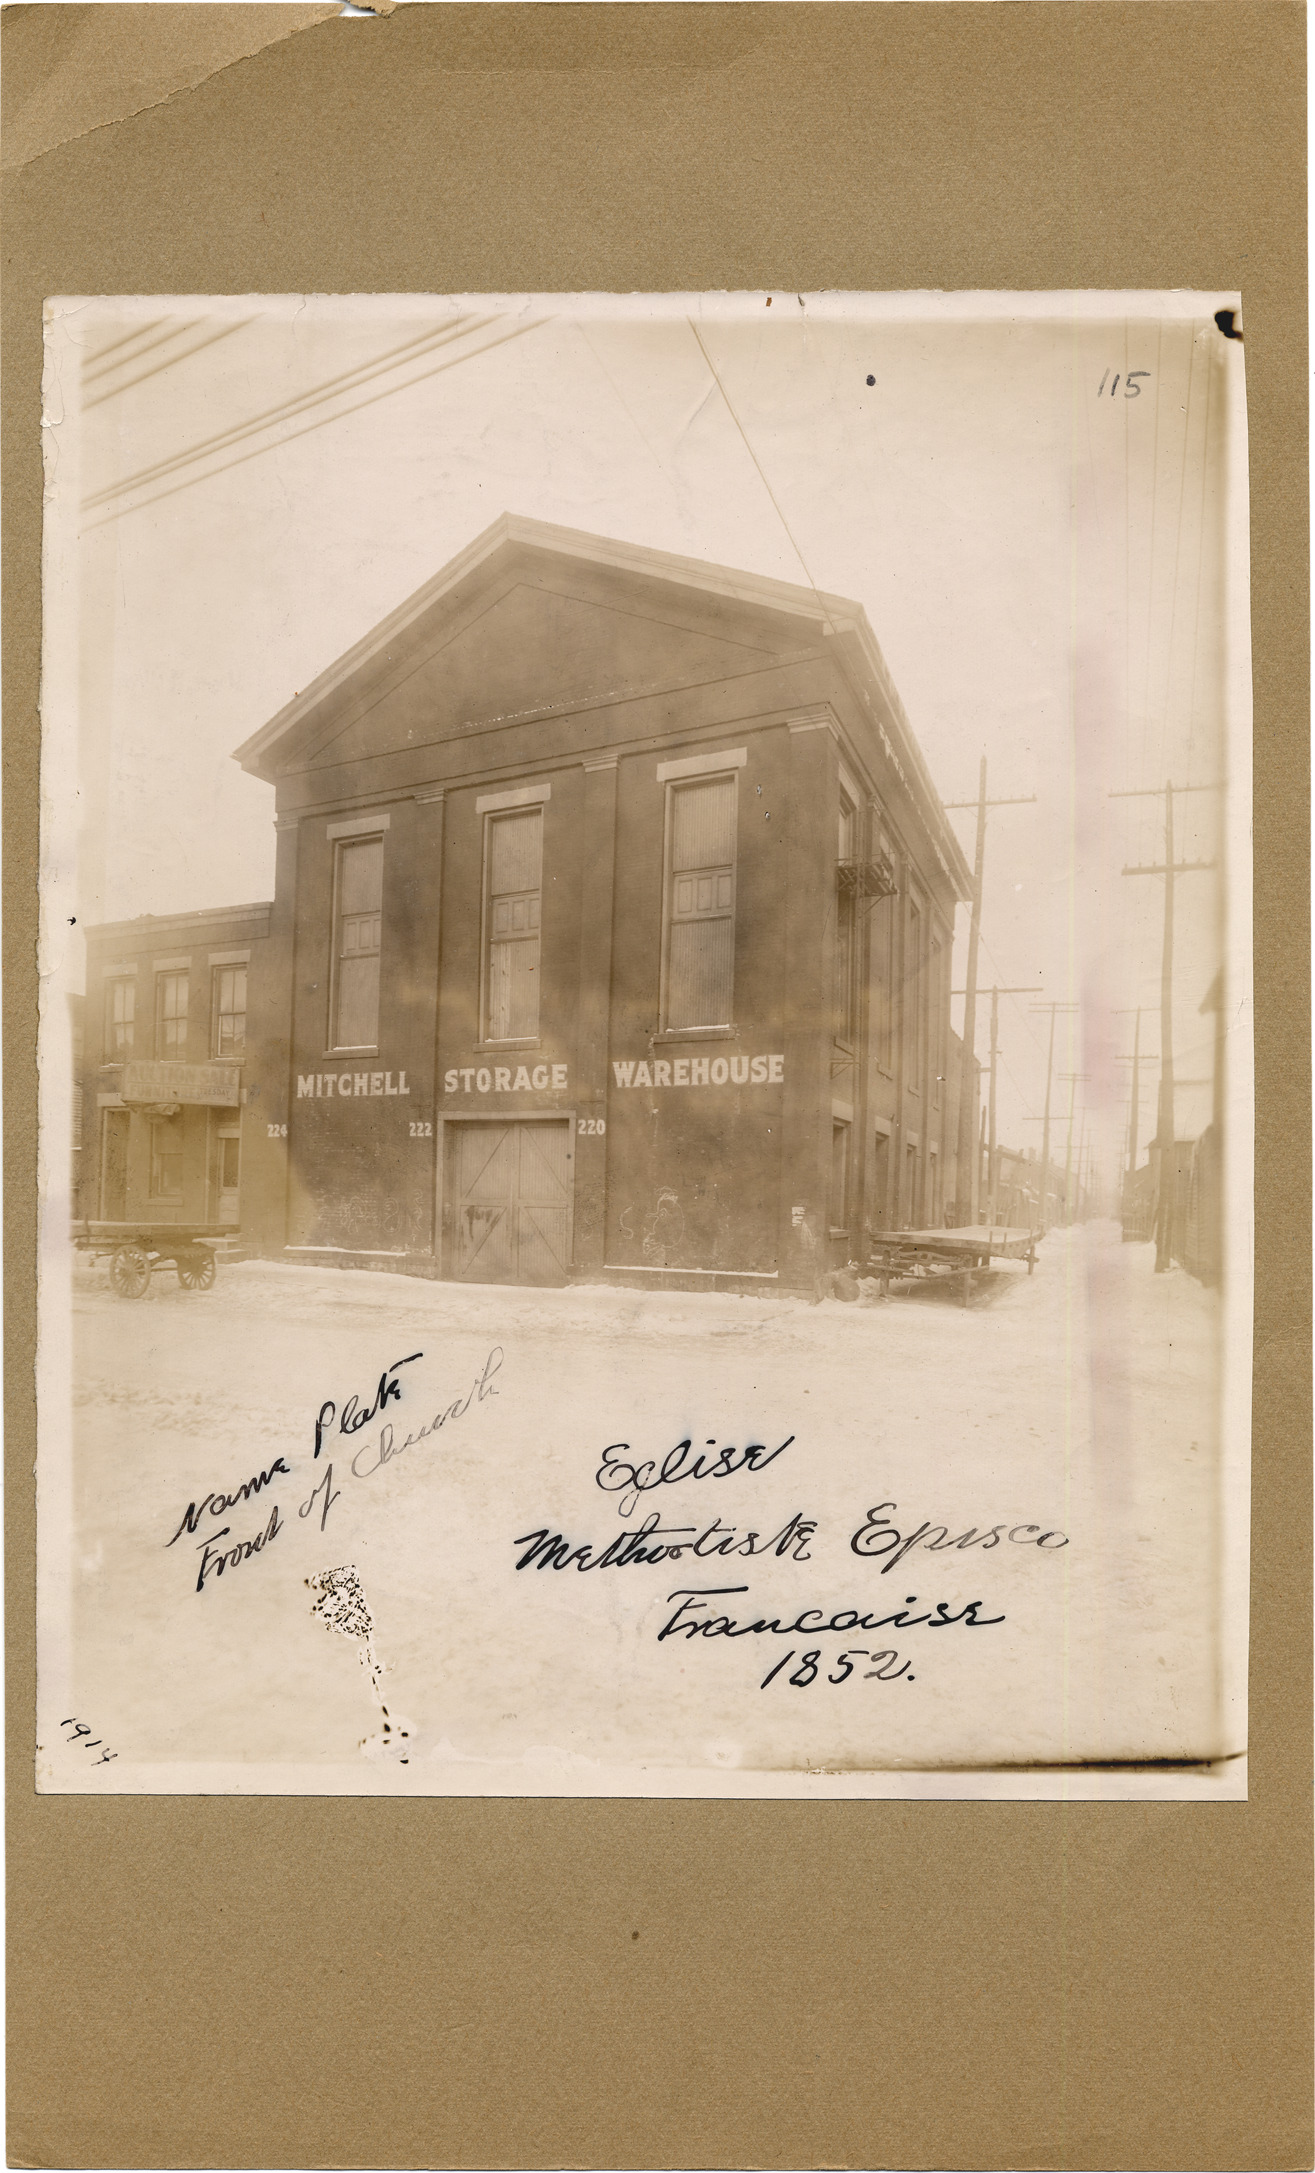 115
MITCHELL STORAGE WAREHOUSE
224 222 220
Name Plate
Front of Church
Eglise
Methodiste Episco
Francaise
1852.
1914